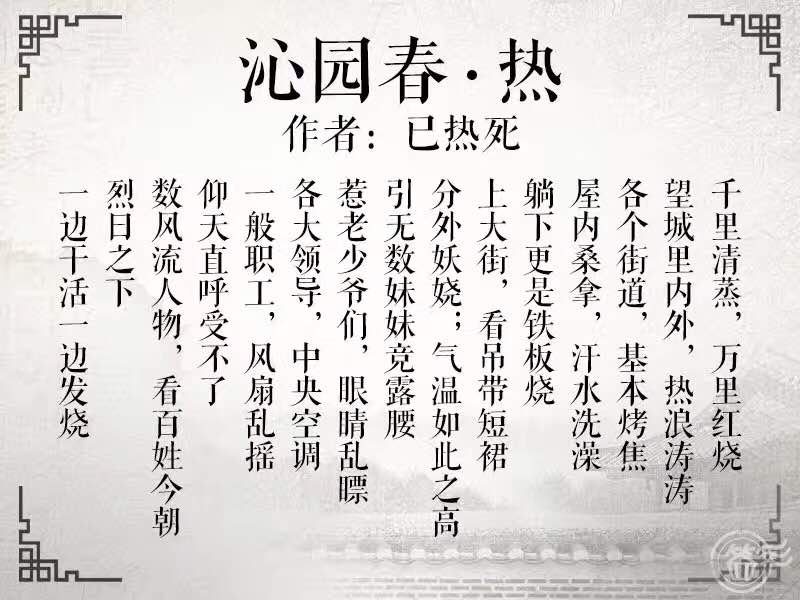 沁园春·热
作者：已热死
千里清蒸，万里红烧
望城里内外，热浪涛涛
各个街道，基本烤焦
屋内桑拿，汗水洗澡
躺下更是铁板烧
上大街，看吊带短裙
分外妖娆；气温如此之高
引无数妹妹竞露腰
惹老少爷们，眼睛乱瞟
各大领导，中央空调
一般职工，风扇乱摇
仰天直呼受不了
数风流人物，看百姓今朝
烈日之下
一边干活一边发烧